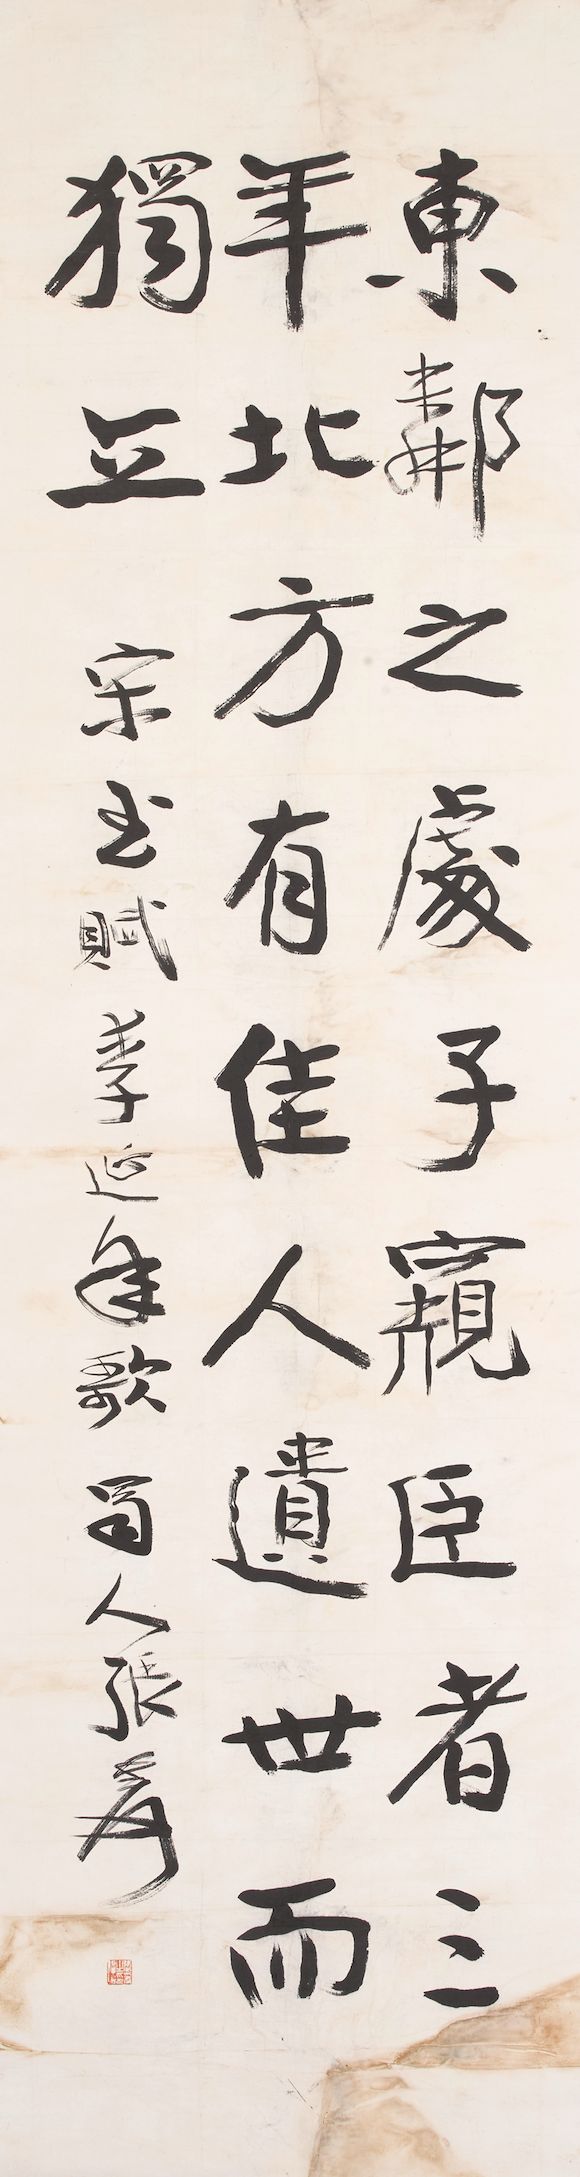 東鄰之處子窺臣者三
年北方有佳人遺世而
獨立 宋玉賦李延年歌蜀人張爰